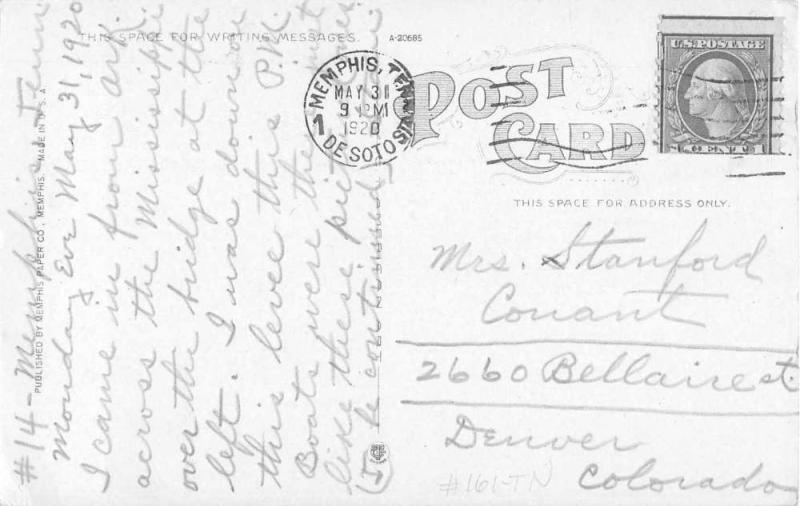 THIS SPACE FOR WRITING MESSAGES.
A-20685
PUBLISHED BY MEMPHIS PAPER CO., MEMPHIS. MADE IN U. S. A.
#14 - Memphis - Tenn
Monday Eve May 31, 1920
I came in from Ark.
across the Mississippi
over the bridge at the
left. I was down on
this levee this P.M.
Boats were there just
like these
(To be continued)
MEMPHIS, TENN.
MAY 31
9 PM
1920
DE SOTO STA
1
POST
CARD
U.S. POSTAGE
1 CENT 1
THIS SPACE FOR ADDRESS ONLY.
Mrs. Stanford
Conant
2660 Bellaire st.
Denver
Colorado
#161-TN